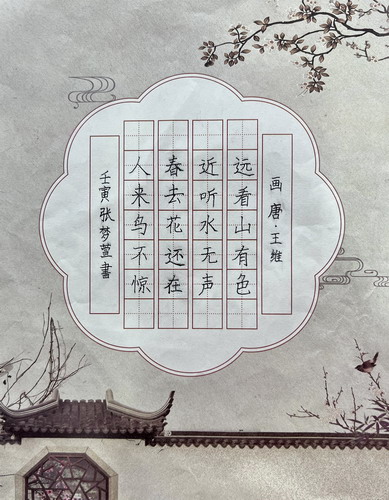 画 唐·王维
远看山有色
近听水无声
春去花还在
人来鸟不惊
壬寅张梦萱书